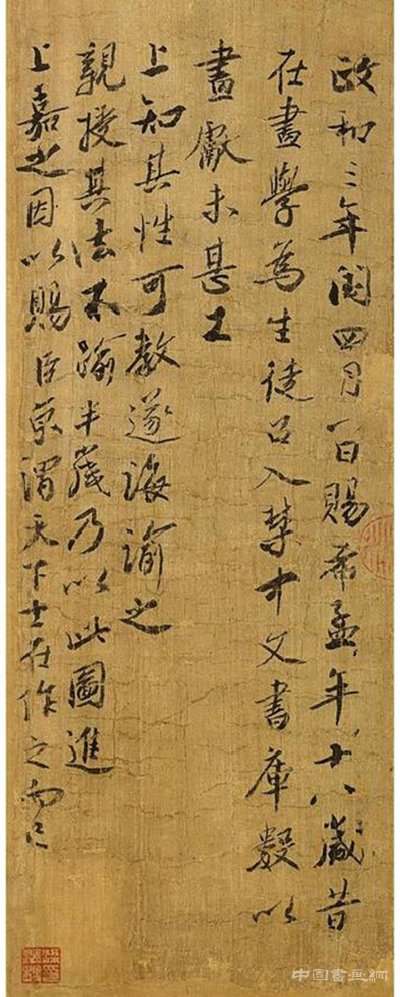 政和三年閏四月一日賜希孟年十八歲昔
在畫學為生徒召入禁中文書庫數以
畫獻未甚工
上知其性可教遂誨諭之
親授其法不踰半歲乃以此圖進
上嘉之因以賜臣京謂天下士在作之而已
中国書画網